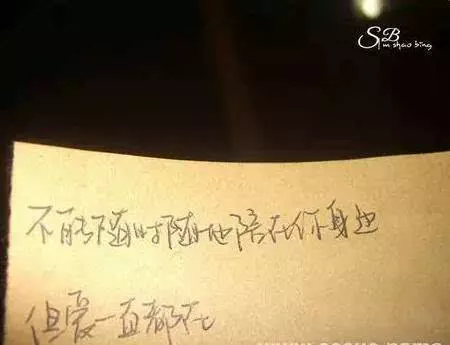 SB
un shao bing
不能随时随地陪在你身边
但爱一直都在